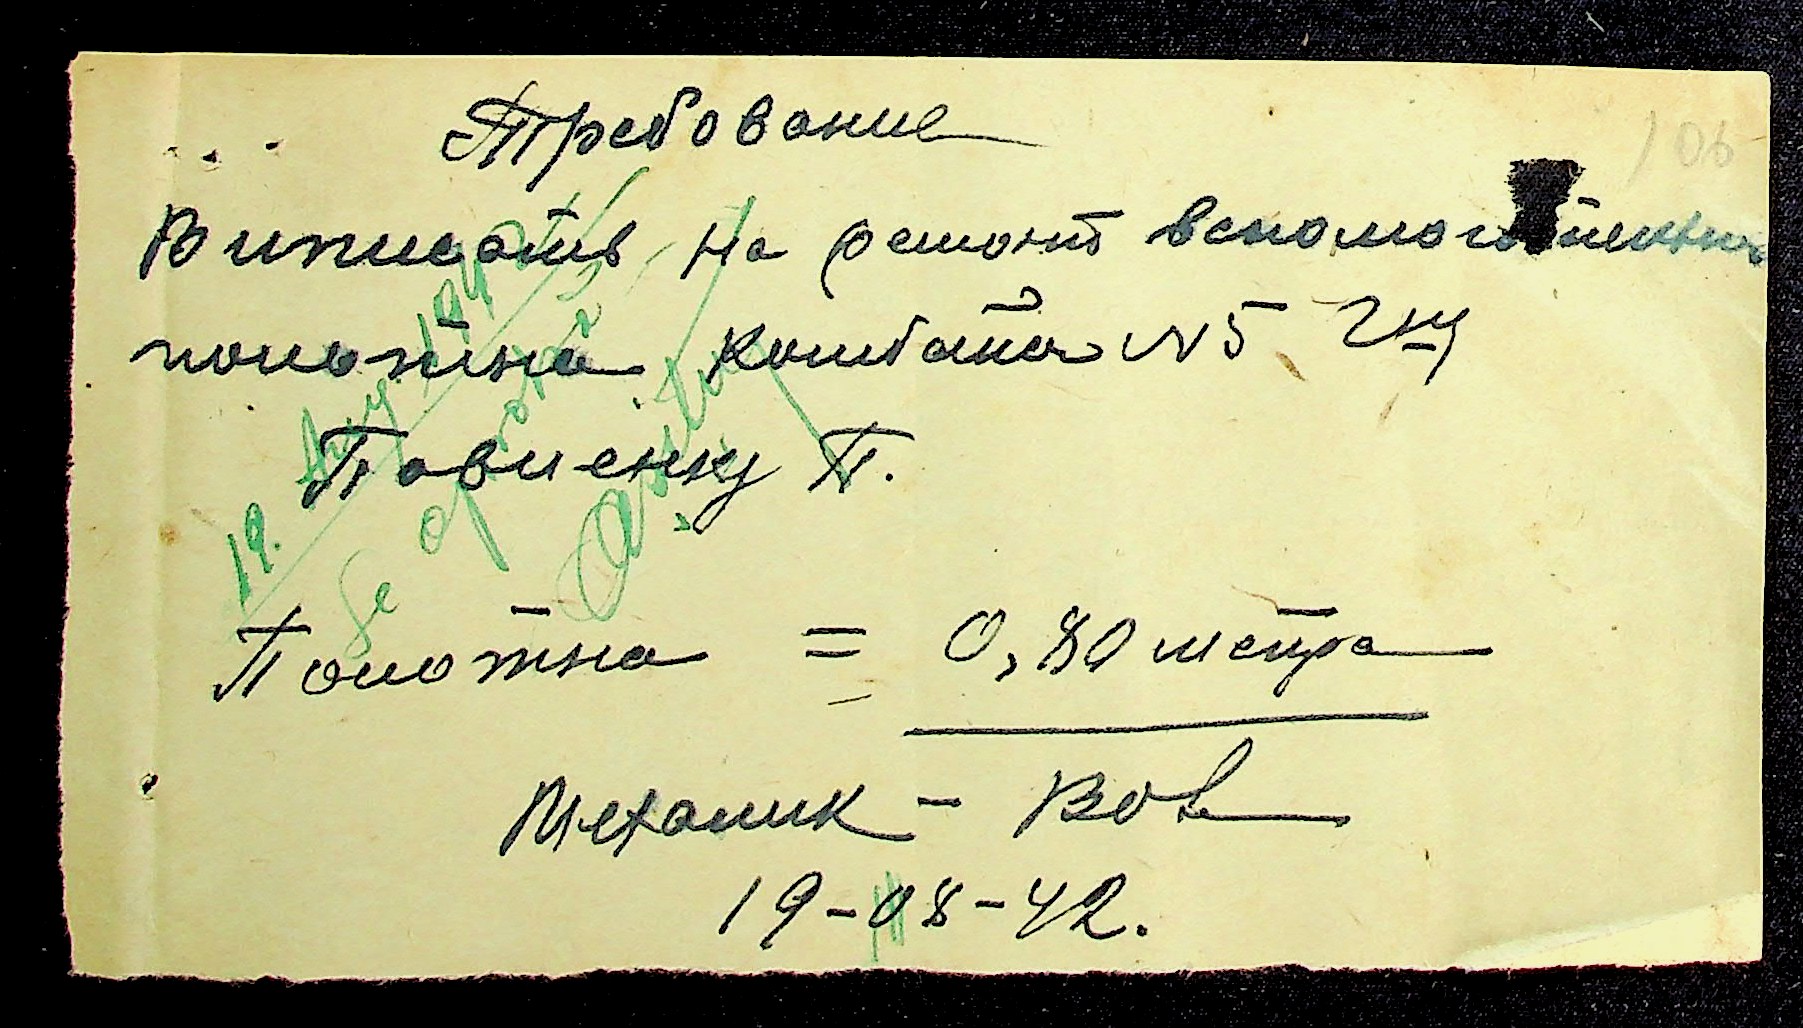 Требование
Виписать на ремонт вспомогательн
полотна комбайна N5 2му
Павленку П.
Полотна = 0,80 метра
Механик - Вов
19-08-42.
106
19.